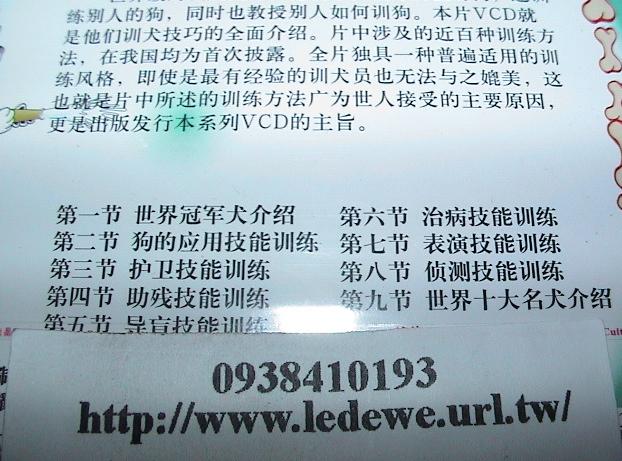 练别人的狗，同时也教授别人如何训狗。本片VCD就
是他们训犬技巧的全面介绍。片中涉及的近百种训练方
法，在我国均为首次披露。全片独具一种普遍适用的训
练风格，即使是最有经验的训犬员也无法与之媲美，这
也就是片中所述的训练方法广为世人接受的主要原因，
更是出版发行本系列VCD的主旨。
第一节 世界冠军犬介绍
第二节 狗的应用技能训练
第三节 护卫技能训练
第四节 助残技能训练
第五节 导盲技能训练
第六节 治病技能训练
第七节 表演技能训练
第八节 侦测技能训练
第九节 世界十大名犬介绍
0938410193
http://www.ledewe.url.tw/